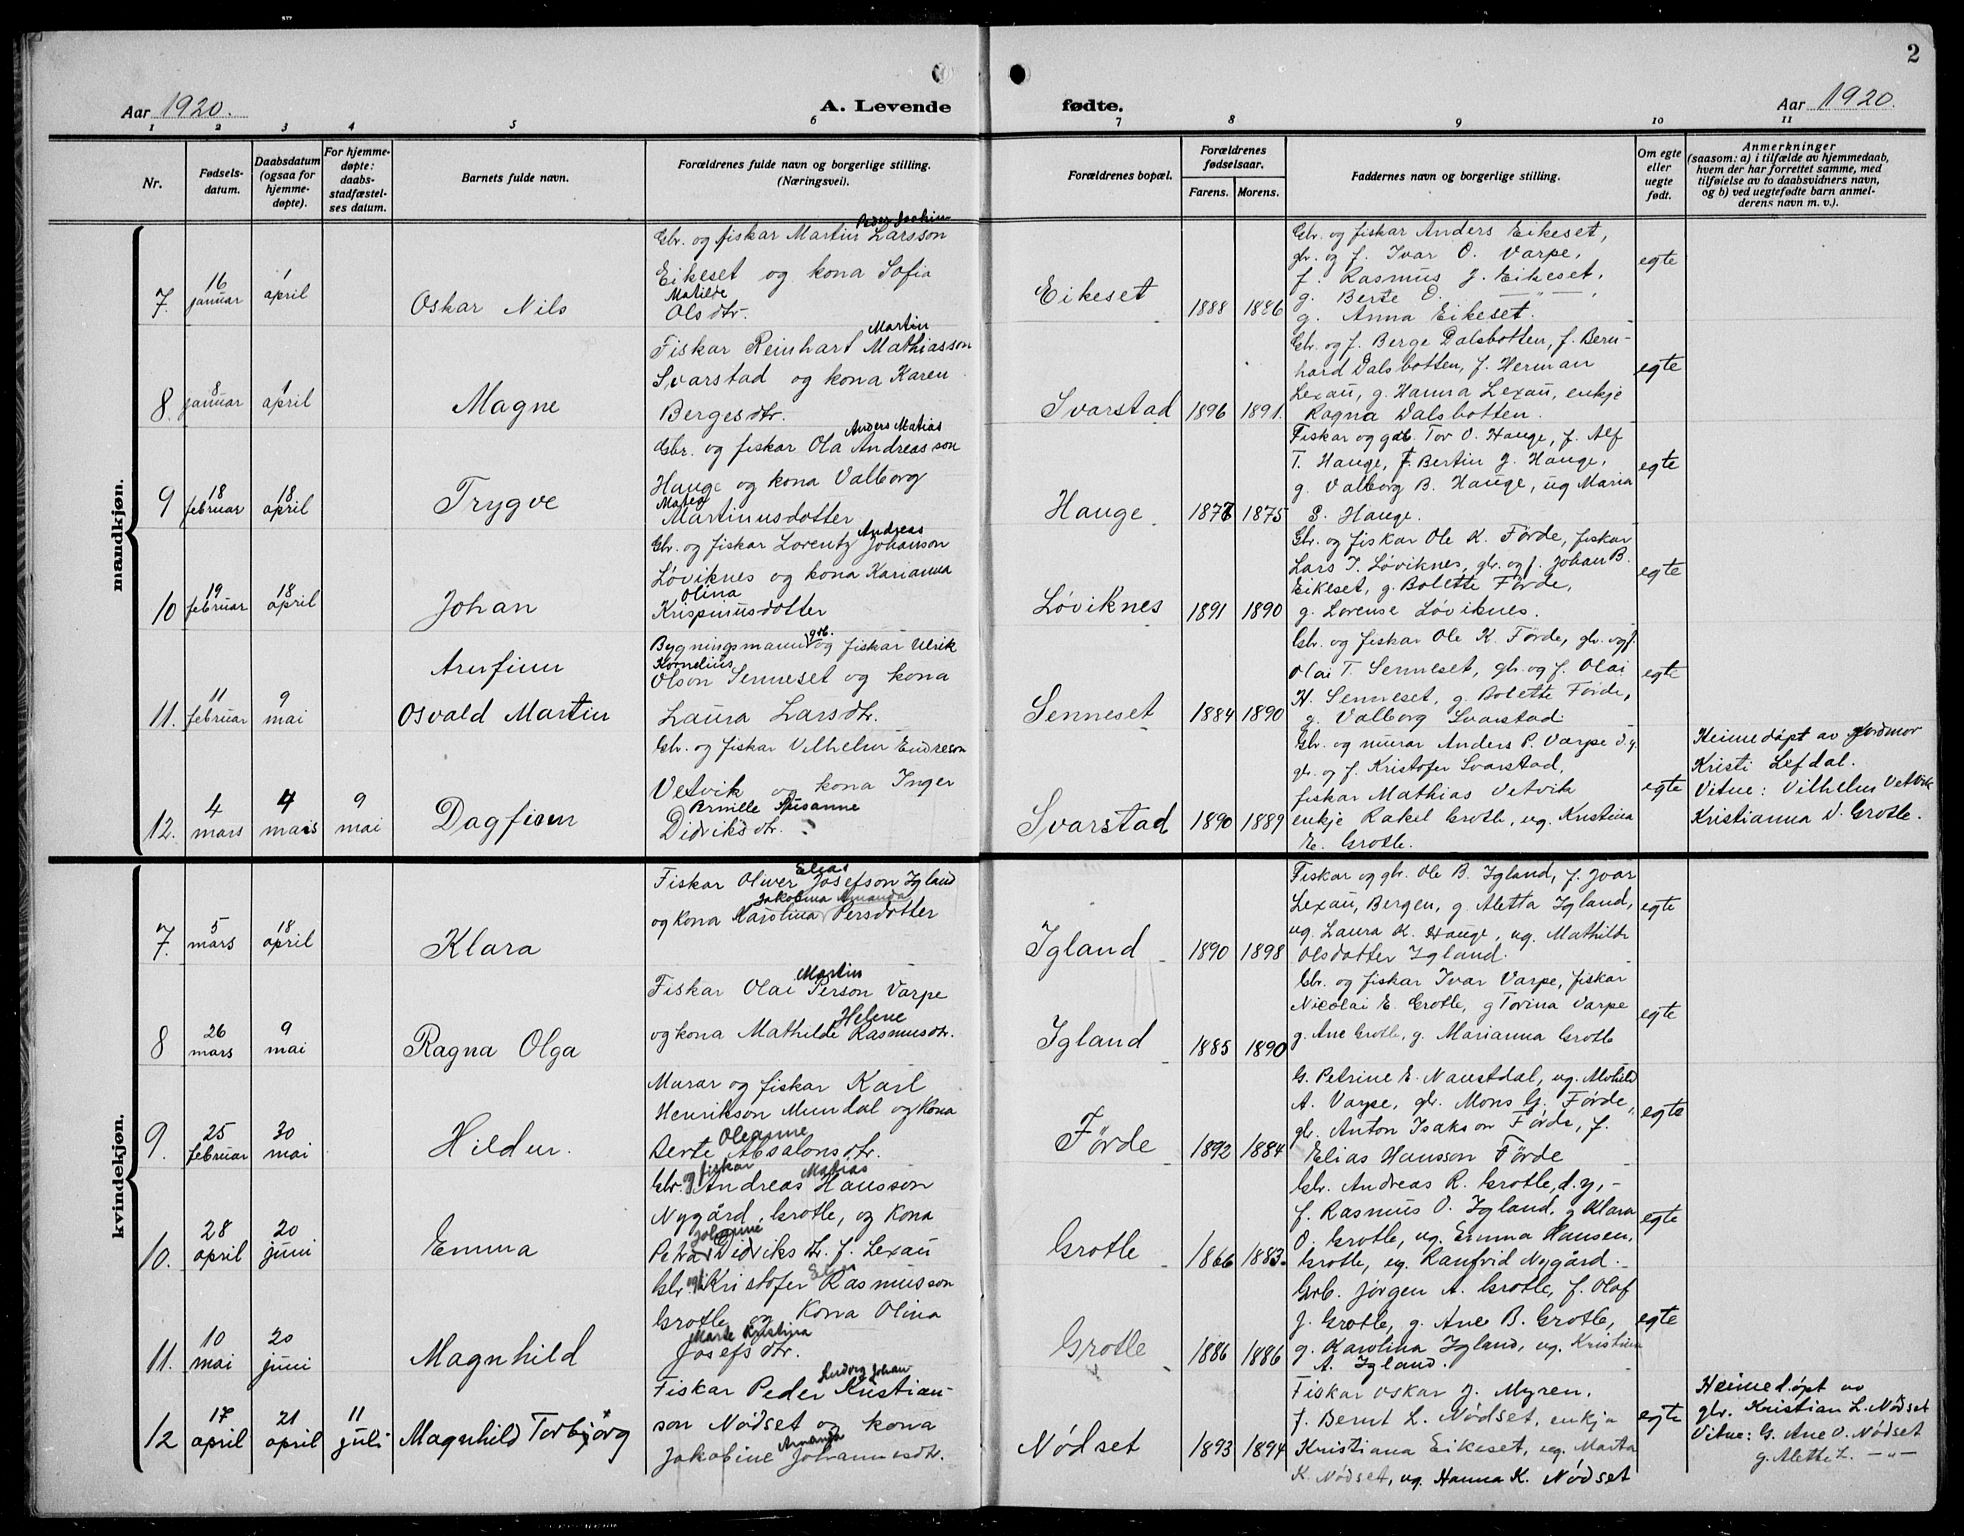 2
Aar 1920.
A. Levende
fødte.
Aar 1920.
1 2 3 4 5 6 7 8 9 10 11
Nr.
Fødsels-
datum.
Daabsdatum
(ogsaa for
hjemme-
døpte).
For hjemme-
døpte:
daabs-
stadfæstel-
ses datum.
Barnets fulde navn.
Forældrenes fulde navn og borgerlige stilling.
(Næringsvei).
Forældrenes bopæl.
Forældrenes
fødselsaar.
Farens. Morens.
Faddernes navn og borgerlige stilling.
Om egte
eller
uegte
født.
Anmerkninger
(saasom: a) i tilfælde av hjemmedaab,
hvem der har forrettet samme, med
tilføielse av to daabsvidners navn,
og b) ved uegtefødte barn anmel-
derens navn m. v.).
mandkjøn.
7. 16 januar 1 april
Oskar Nils
Peder Joakim
Gbr. og fiskar Martin Larsson
Eikeset og kona Sofia
Matilde
Olsdtr.
Eikeset 1888 1886
Gbr. og fiskar Anders Eikeset,
gbr. og f. Ivar O. Varpe,
f. Rasmus J. Eikeset,
g. Berte O. —"—,
g. Anna Eikeset.
egte
8. 8 januar 1 april
Magne
Martin
Fiskar Reinhart Mathiasson
Svarstad og kona Karen
Bergesdtr.
Svarstad 1896 1891.
Gbr. og f. Berge Dalsbotten, f. Bern-
hard Dalsbotten, f. Herman
Lexau, g. Hanna Lexau, enkje
Ragna Dalsbotten.
egte
9 18 februar 18 april
Trygve
Anders Matias
Gbr. og fiskar Ola Andreasson
Hauge og kona Valborg
Martinusdotter
Hauge 1877 1875
Fiskar og gdb. Tor O. Hauge, f. Alf
T. Hauge, f. Bertin J. Hauge,
g. Valborg B. Hauge, ug Maria
S. Hauge.
egte
10 19 februar 18 april
Johan
Andreas
Gbr. og fiskar Lorentz Johanson
Løviknes og kona Karianna
Olina
Krispinusdotter
Løviknes 1891 1890
Gbr. og fiskar Ole K. Förde, fiskar
Lars T. Løviknes, gbr. og f. Johan B.
Eikeset, g. Bolette Förde,
g. Lorense Løviknes.
egte
11. 11 februar 9 mai
Arnfinn
Osvald Martin
Bygningsmann grb. og fiskar Ulrik
Kornelius
Olson Senneset og kona
Laura Larsdtr.
Senneset 1884 1890
Gbr. og fiskar Ole K. Förde, gbr. og f.
Olai T. Senneset, gbr. og f. Olai
H. Senneset, g. Bolette Förde,
g. Valborg Svarstad
egte
12. 4 mars 4 mars 9 mai
Dagfinn
Gbr. og fiskar Vilhelm Endreson
Vetvik og kona Inger
Brnille Susanne
Didriksdtr.
Svarstad 1890 1889
Gbr. og murar Anders P. Varpe d.y.
gbr. og f. Kristofer Svarstad,
fiskar Mathias Vetvik
enkje Rakel Grotle, ug. Kristina
E. Grotle.
egte
Heimedøpt av jordmor
Kristi Lefdal.
Vitne: Vilhelm Vetvik
Kristianna D. Grotle.
kvindekjøn.
7. 5 mars 18 april
Klara
Elias
Fiskar Oliver Josefson Igland
Jakobina Amanda
og kona Karolina Persdotter
Igland 1890 1898
Fiskar og gbr. Ole B. Igland, f. Ivar
Lexau, Bergen, g. Aletta Igland,
ug. Laura K. Hauge, ug. Mathilde
Olsdotter Igland.
egte
8 26 mars 9 mai
Ragna Olga
Martin
Fiskar Olai Person Varpe
Helene
og kona Mathilde Rasmusdtr.
Igland 1885 1890
Gbr. og fiskar Ivar Varpe, fiskar
Nicolai E. Grotle, g Torina Varpe
g. Ane Grotle, g. Marianna Grotle
egte
9. 25 februar 30 mai
Hildur.
Murar og fiskar Karl
Henrikson Mundal og kona
Oleanne
Berte Absalonsdtr.
Förde 1892 1884
G. Petrine E. Naustdal, ug.
A. Varpe, gbr. Mons G. Förde,
gbr. Anton Isakson Förde, f.
Elias Hansson Förde
egte
10. 28 april 20 juni
Emma
og fiskar Matias
Gbr. Andreas Hansson
Nygård, Grotle, og kona
Johanne
Petra Didriksdtr. f. Lexau
Grotle 1866 1883.
Gbr. Andreas R. Grotle, d.y, -
f. Rasmus O. Igland, g Klara
O. Grotle, ug. Emma Hansen,
Grotle, ug. Ranfrid Nygård.
egte
11. 10 mai 20 juni
Magnhild
Elias
Gbr. og f. Kristofer Rasmusson
Grotle og kona Olina
Marte Kristina
Josefsdtr.
Grotle 1886 1886
Grb. Jørgen A. Grotle, f. Olaf
J. Grotle, g. Ane B. Grotle,
g. Karolina Igland, ug. Kristina
A. Igland.
egte
12 17 april 21 april 11 juli
Magnhild Torbjørg
Ludvig Johan
Fiskar Peder Kristian-
son Nødset og kona
Amanda
Jakobine Johannesdtr.
Nødset 1893 1894
Fiskar Oskar J. Myren,
f. Bernt L. Nødset, enkja
Kristiana Eikeset, ug. Marta
K. Nødset, ug. Hanna K. Nødset
egte
Heimedøpt av
gbr. Kristian L. Nødset
Vitne: G. Ane O. Nødset
g. Alette L. —"—